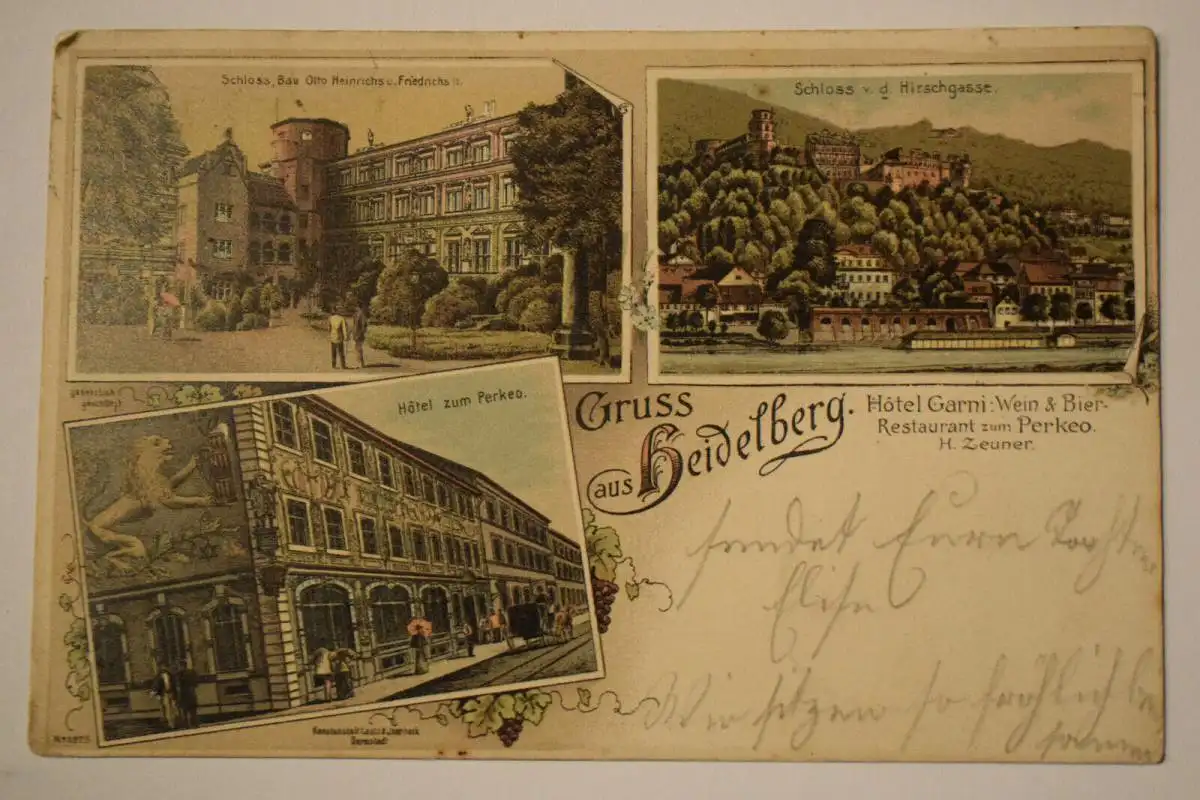 Schloss, Bau Otto Heinrichs u. Friedrichs II.
Schloss v. d. Hirschgasse.
gesetzlich geschützt
Hôtel zum Perkeo.
Gruss
aus Heidelberg.
Hôtel Garni: Wein & Bier-
Restaurant zum Perkeo.
H. Zeuner.
sendet Eure
Elise
Wir sitzen so fröhlich
Kunstanstalt
Darmstadt